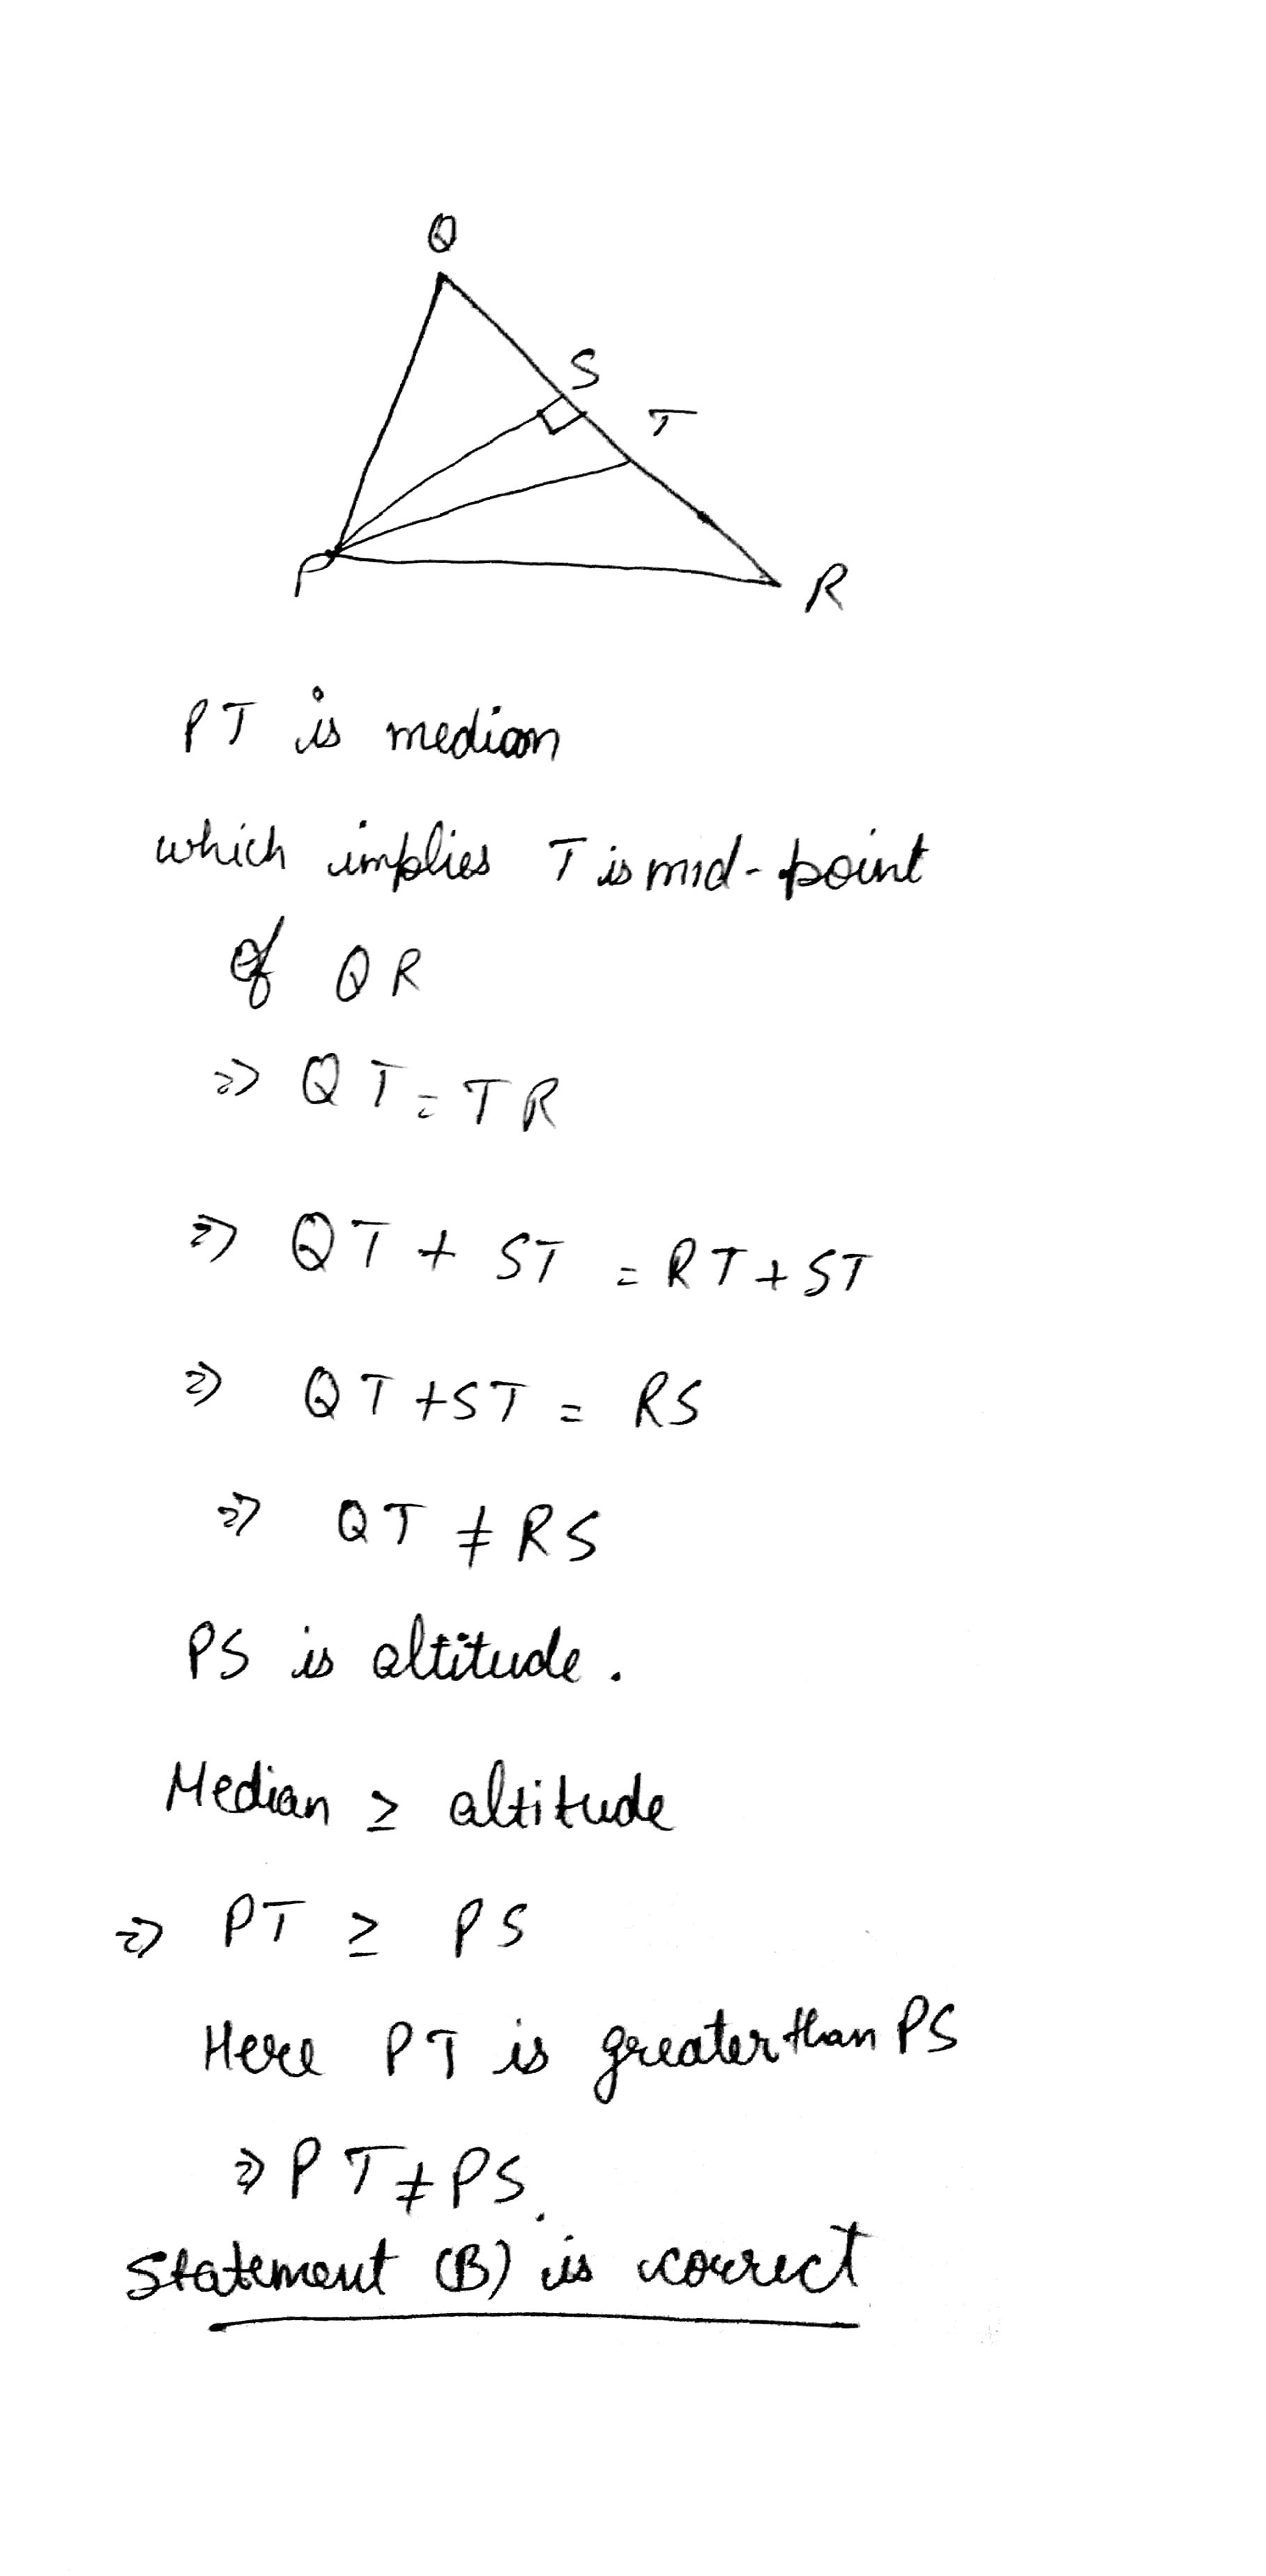 Q
S
T
P
R
PT is median
which implies T is mid-point
of QR
⇒ QT = TR
⇒ QT + ST = RT + ST
⇒ QT + ST = RS
⇒ QT ≠ RS
PS is altitude.
Median ≥ altitude
⇒ PT ≥ PS
Here PT is greater than PS
⇒ PT ≠ PS.
Statement (B) is correct